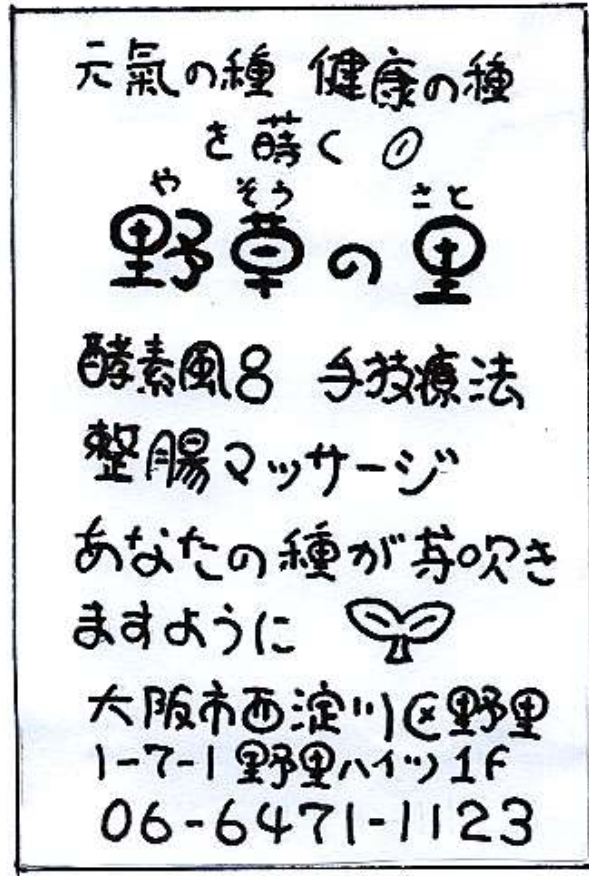 元氣の種 健康の種
を蒔く
や そう さと
野草の里
酵素風呂 手技療法
整腸マッサージ
あなたの種が芽吹き
ますように
大阪市西淀川区野里
1-7-1 野里ハイツ1F
06-6471-1123